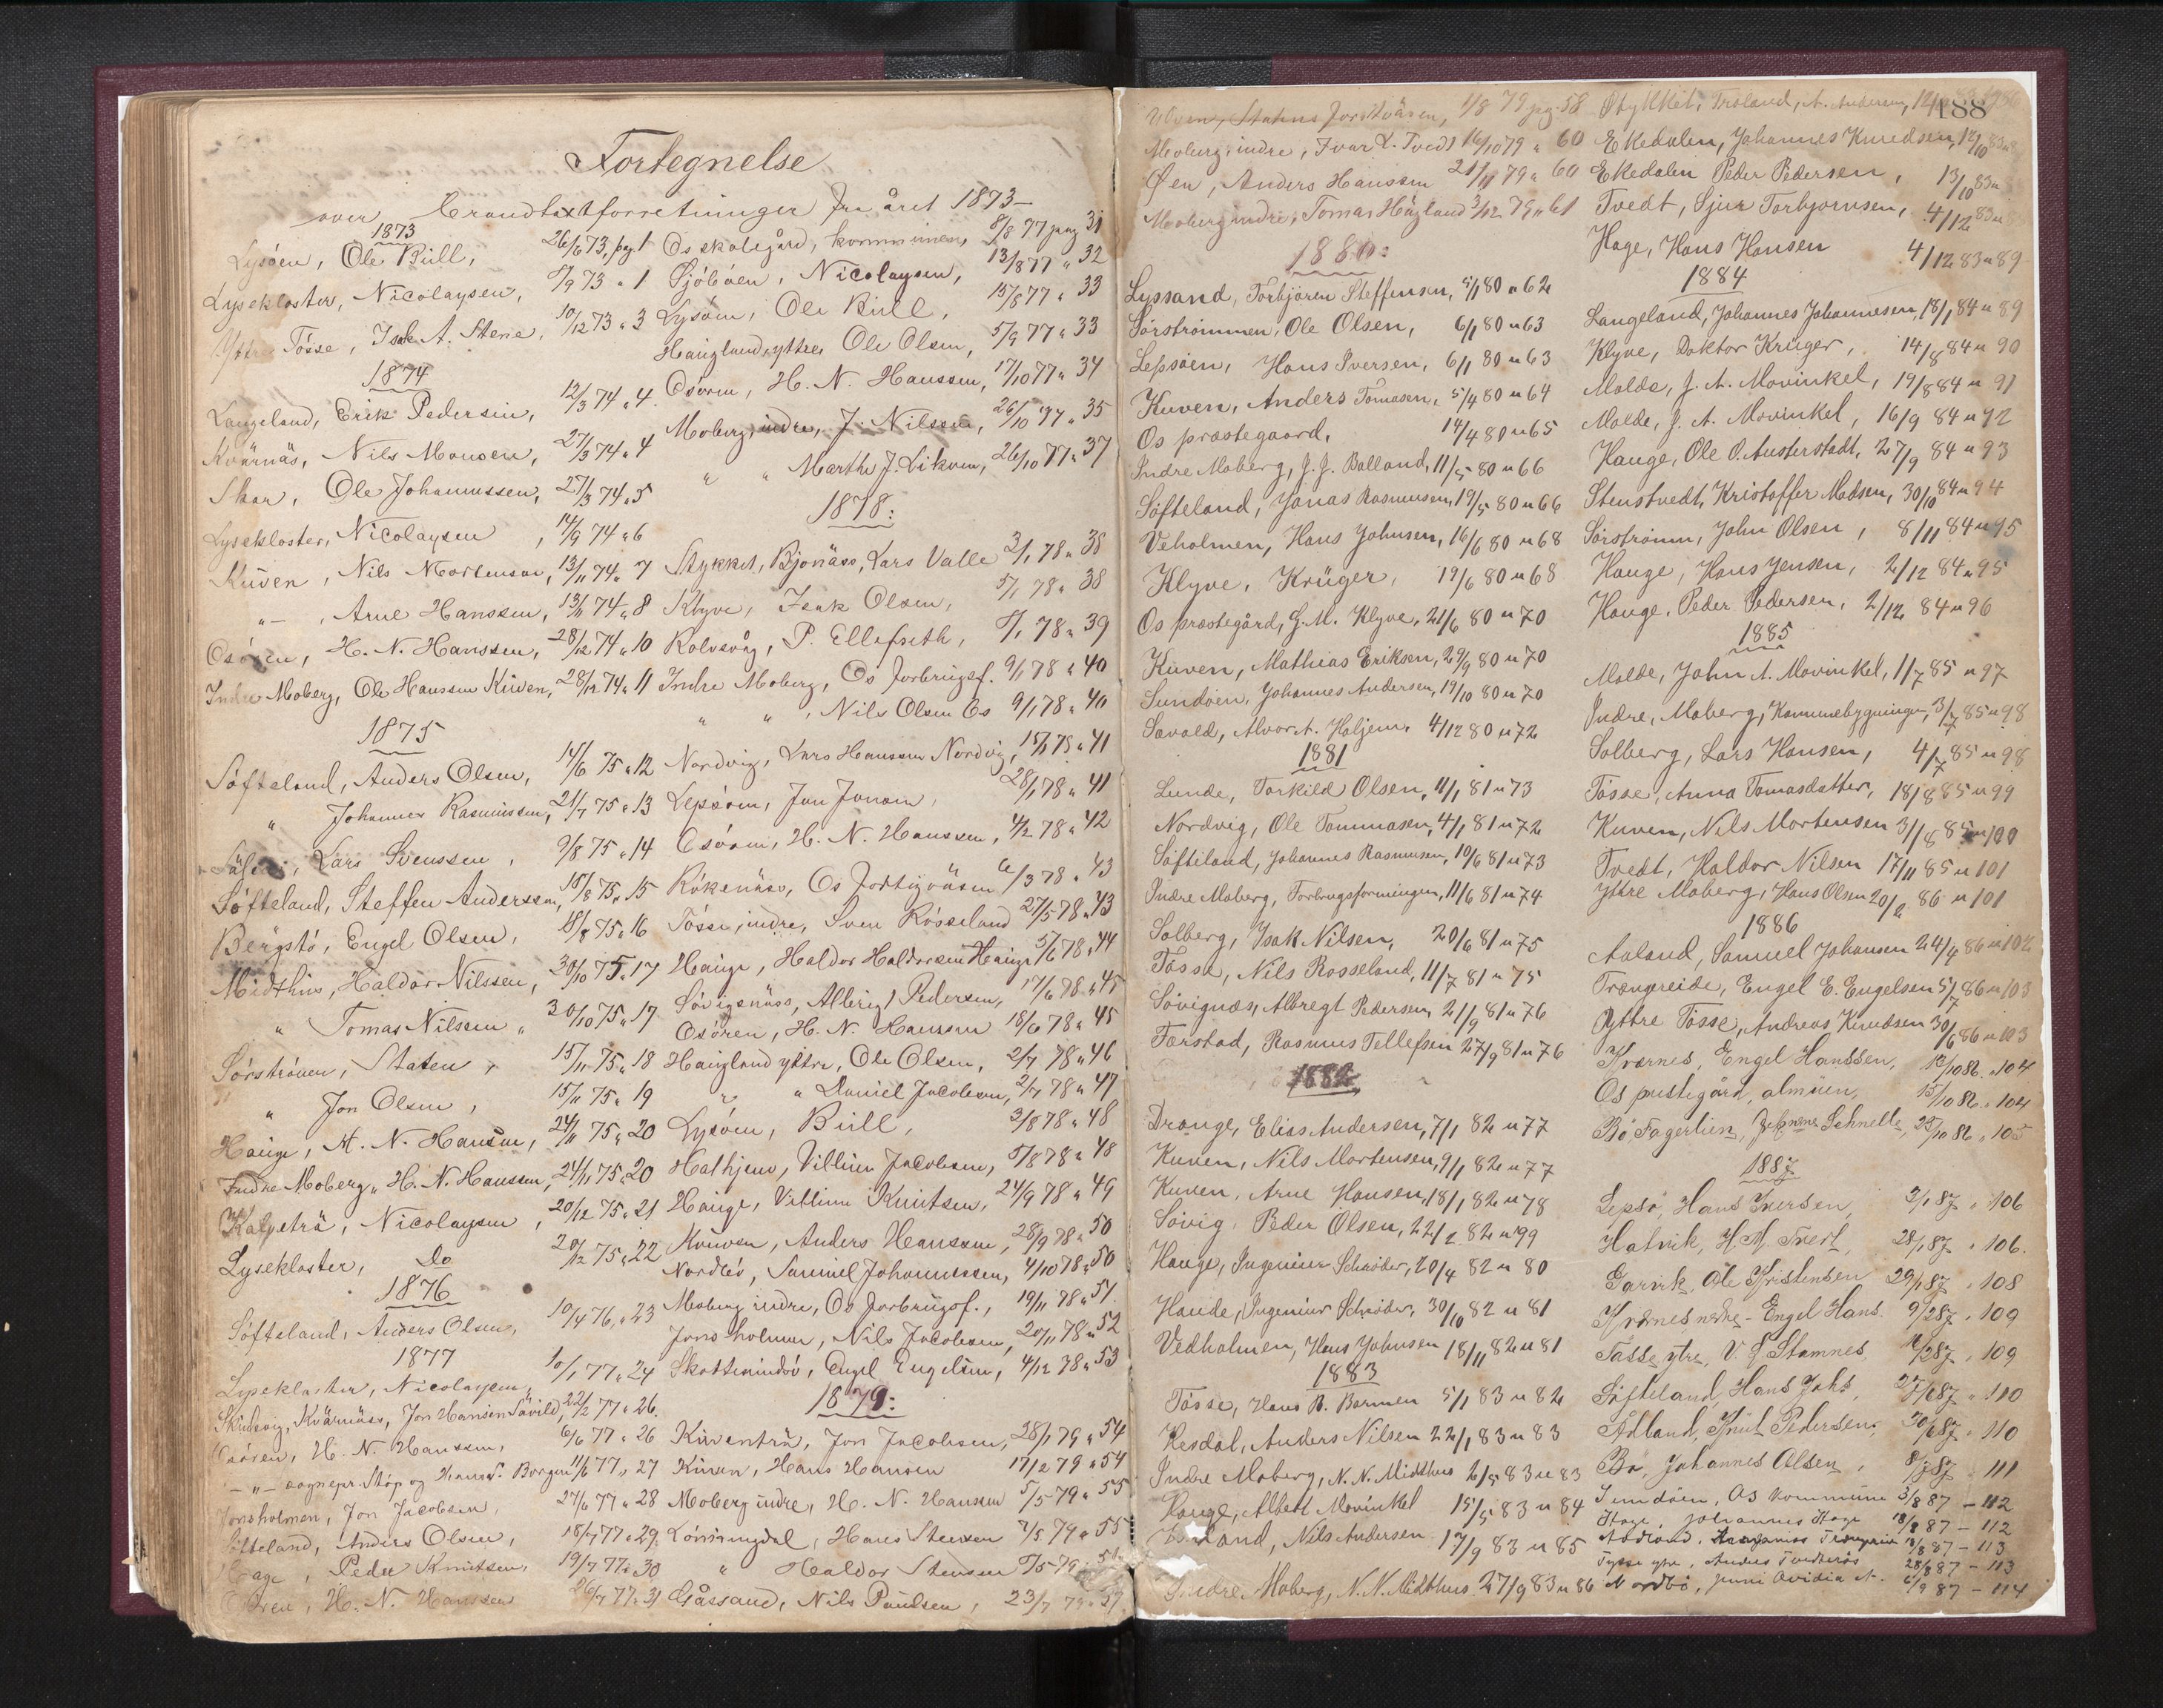 Fortegnelse
over Brandtaxtforretninger fra året 1873-
1873
Lysöen, Ole Bull, 26/6 73, pag 1
Lysekloster, Nicolaysen, 8/9 73 " 1
Yttre Tösse, Isak A. Stene, 10/12 73 " 3
1874
Langeland, Erik Pedersen, 12/3 74 " 4
Kvärnäs, Nils Monsen, 27/3 74 " 4
Skar, Ole Johannessen, 27/3 74 " 5
Lysekloster, Nicolaysen, 14/9 74 " 6
Kuven, Nils Mortensen, 13/11 74 " 7
" — , Arne Hanssen, 13/11 74 " 8
Osören, H. N. Hanssen, 28/12 74 " 10
Indre Moberg, Ole Hanssen Kuven, 28/12 74 " 11
1875
Söfteland, Anders Olsen, 14/6 75 " 12
" Johannes Rasmussen, 21/7 75 " 13
Lars Svenssen, 9/8 75 " 14
Söfteland, Steffen Anderssen, 18/8 75 " 15
Bergstö, Engel Olsen, 18/8 75 " 16
Midthus, Haldor Nilssen, 30/10 75 " 17
" Tomas Nilssen " 30/10 75 " 17
Sörströnen, Staten, 15/11 75 " 18
" Jon Olsen, 15/11 75 " 19
Hauge, H. N. Hansen, 24/11 75 " 20
Indre Moberg, H. N. Hanssen, 24/11 75 " 20
Kalveträ, Nicolaysen, 20/12 75 " 21
Lysekloster, Do 20/12 75 " 22
1876
Söfteland, Anders Olsen, 10/4 76, " 23
1877
Lysekloster, Nicolaysen, 10/1 77 " 24
Skudvig, Kvärnäss, Jon Hansen Sävild, 22/2 77 " 26
Osören, H. N. Hanssen, 6/6 77 " 26
— " — sognepr. Støp og Hans S. Borgen 11/6 77 " 27
Jonsholmen, Jon Jacobsen, 27/6 77 " 28
Söfteland, Anders Olsen, 18/7 77 " 29
Hage, Peder Knutsen, 19/7 77 " 30
Osören, H. N. Hanssen 26/7 77 " 31
Os skolegård, kommunen, 8/8 77 pag 31
Sjöbøen, Nicolaysen, 13/8 77 " 32
Lysøen, Ole Bull, 15/8 77 " 33
Hauglund, yttre, Ole Olsen, 5/9 77 " 33
Osören, H. N. Hanssen, 17/10 77 " 34
Moberg, indre, J. Nilssen, 26/10 77 " 35
" " Marthe J. Likven, 26/10 77 " 37
1878:
Stykket, Bjonäss, Lars Valle 3/1 78 " 38
Klyve, Isak Olsen, 5/1 78 " 38
Rolvsvåg, P. Ellefseth, 8/1 78 " 39
Indre Moberg, Os Forbrugsf. 9/1 78 " 40
" " , Nils Olsen Os 9/1 78 " 40
Nordvig, Lars Hanssen Nordvig, 15/1 78 " 41
Lepsöen, Jan Jonsen, 28/1 78 " 41
Osören, H. N. Hanssen, 4/2 78 " 42
Rökenäss, Os Fattigväsen 6/3 78 " 43
Tösse, indre, Sven Rösseland 27/5 78 " 43
Hauge, Haldor Haldorsen Hauge 5/6 78 " 44
Sövignäss, Albrigt Pedersen, 17/6 78 " 45
Osören, H. N. Hanssen 18/6 78 " 45
Haugland yttre, Ole Olsen, 2/7 78 " 46
" " Daniel Jacobsen, 2/7 78 " 47
Lysöen, Bull, 3/8 78 " 48
Hathjem, Villum Jacobsen, 5/8 78 " 48
Hauge, Villum Knutsen, 24/9 78 " 49
Kuven, Anders Hanssen, 28/9 78 " 50
Nordbö, Samuel Johannessen, 4/10 78 " 50
Moberg indre, Os Forbrugsf., 19/11 78 " 51
Jonsholmen, Nils Jacobsen, 20/11 78 " 52
Skottemindö, Engel Engelsen, 4/12 78 " 53
1879:
Kuventrä, Jon Jacobsen, 28/1 79 " 54
Kuven, Hans Hansen 17/2 79 " 54
Moberg indre, H. N. Hanssen 5/5 79 " 55
Lönningdal, Hans Stensen 7/5 79 " 55
" Haldor Stensen
Gåssand, Nils Paulsen, 23/7 79 " 57
Ulven, Statens Forstväsen, 1/8 79 pg. 58
Moberg, indre, Ivar L. Tvedt 16/10 79 " 60
Øen, Anders Hanssen 21/11 79 " 60
Moberg indre, Tomas Hägland 3/12 79 " 61
1880:
Lyssand, Torbjören Steffensen, 5/1 80 " 62
Sörströmmen, Ole Olsen, 6/1 80 " 63
Lepsöen, Hans Iversen, 6/1 80 " 63
Kuven, Anders Tomasen, 5/4 80 " 64
Os præstegaard, 14/4 80 " 65
Indre Moberg, J. J. Balland, 11/5 80 " 66
Söfteland, Jonas Rasmussen, 19/5 80 " 66
Veholmen, Hans Johnsen, 16/6 80 " 68
Klyve, Krüger, 19/6 80 " 68
Os præstegård, G. M. Klyve, 21/6 80 " 70
Kuven, Mathias Eriksen, 29/9 80 " 70
Sundöen, Johannes Andersen, 19/10 80 " 70
Savald, Alvor A. Haljem, 4/12 80 " 72
1881
Lunde, Torkild Olsen, 11/1 81 " 73
Nordvig, Ole Tommasen, 4/1 81 " 72
Söfteland, Johannes Rasmusen, 10/6 81 " 73
Indre Moberg, Forbrugsforeningen, 11/6 81 " 74
Solberg, Isak Nilsen, 20/6 81 " 75
Tösse, Nils Rosseland, 11/7 81 " 75
Sövignæs, Albregt Pedersen, 21/9 81 " 76
Færstad, Rasmus Tellefsen 27/9 81 " 76
1882
Drange, Elias Andersen, 7/1 82 " 77
Kuven, Nils Mortensen, 9/1 82 " 77
Kuven, Arne Hansen, 18/1 82 " 78
Sövig, Peder Olsen, 22/2 82 " 99
Hauge, Ingeniør Schrøder, 20/4 82 " 80
Haude, Ingeniør Schrøder, 30/10 82 " 81
Vedholmen, Hans Johnsen 18/11 82 " 81
1883
Tösse, Hans B. Barmen 5/1 83 " 82
Hesdal, Anders Nilsen 22/1 83 " 83
Indre Moberg, N. N. Midthus 2/5 83 " 83
Hauge, Albert Movinkel 15/5 83 " 84
Nils Andersen 17/9 83 " 85
Indre Moberg, N. N. Midthus 27/9 83 " 86
188
Stykket, Troland, A. Andersen,
Ekedalen, Johannes Knudsen, 12/10 83
Ekedalen Peder Pedersen, 13/10 83 "
Tvedt, Sjur Torbjørnsen, 4/12 83 "
Hage, Hans Hansen 4/12 83 " 89
1884
Langeland, Johannes Johannesen, 18/1 84 " 89
Klyve, Doktor Krüger, 14/8 84 " 90
Molde, J. A. Movinkel, 19/8 84 " 91
Molde, J. A. Movinkel, 16/9 84 " 92
Hauge, Ole O. Austerstadt, 27/9 84 " 93
Stenstvedt, Kristoffer Madsen, 30/10 84 " 94
Sörstrømm, John Olsen, 8/11 84 " 95
Hauge, Hans Jensen, 2/12 84 " 95
Hauge, Peder Pedersen, 2/12 84 " 96
1885
Molde, John A. Movinkel, 1/7 85 " 97
Indre, Moberg, Kommunebygningen, 3/7 85 " 98
Solberg, Lars Hansen, 4/7 85 " 98
Tösse, Anna Tomasdatter, 18/8 85 " 99
Kuven, Nils Mortensen 31/8 85 " 100
Tvedt, Haldor Nilsen 17/11 85 " 101
Ytre Moberg, Hans Olsen 20/2 86 " 101
1886
Aaland, Samuel Johansen 24/4 86 " 102
Trængreide, Engel E. Engelsen 5/7 86 " 103
Yttre Tösse, Andreas Knudsen 30/6 86 " 103
Kværnes, Engel Hanssen, 13/10 86 " 104
Os pustegård, almuen, 15/10 86 " 104
Bö Fagerlien, Schnelle, 25/10 86 " 105
1887
Lepsö, Hans Iversen, 3/1 87 " 106
Hatvik, H. M. Tvert, 28/1 87 " 106.
Garvik, Ole Kristensen 29/1 87 " 108
Kværnes nedre - Engel Hans. 9/2 87 " 109
Tøsse ytre, V. L. Stamnes 1/2 87 " 109
Søfteland, Hans Johs. 27/6 87 " 110
Ådland, Knut Pedersen, 30/6 87 " 110
Bö, Johannes Olsen, 8/7 87 " 111
Sundöen, Os kommune 3/8 87 - 112
Hage, Johannes Hage 18/8 87 - 112
18/8 87 - 113
Tysse ytre, Anders Tvedterås 28/8 87 - 113
Nordbö, 6/9 87 - 114